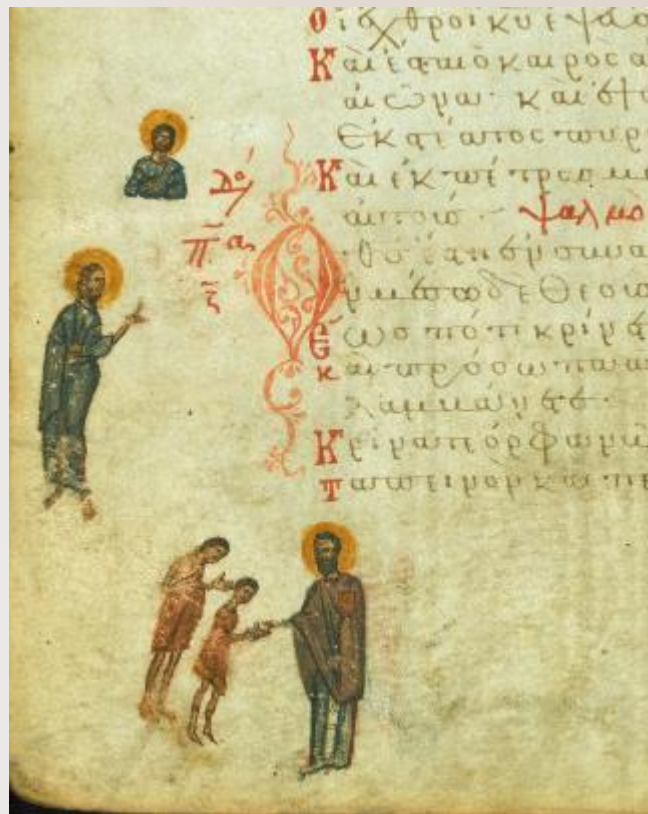 Οἱ ἐχθροὶ κυ ἐψεύσα
Καὶ ἔσται ὁ καιρὸς α
αἰῶνα· καὶ ἐψώ
ἐκ στέατος πυρ
Καὶ ἐκ πέτρας με
αὐτούς· ψαλμὸ
πα
θς ἔστη ἐν συνα
μέσω δὲ θεοὺ
Ἕως πότε κρίνε
καὶ πρόσωπα α
λαμβάνετε·
Κρίνατε ὀρφανῶ
Ταπεινὸν καὶ πέ